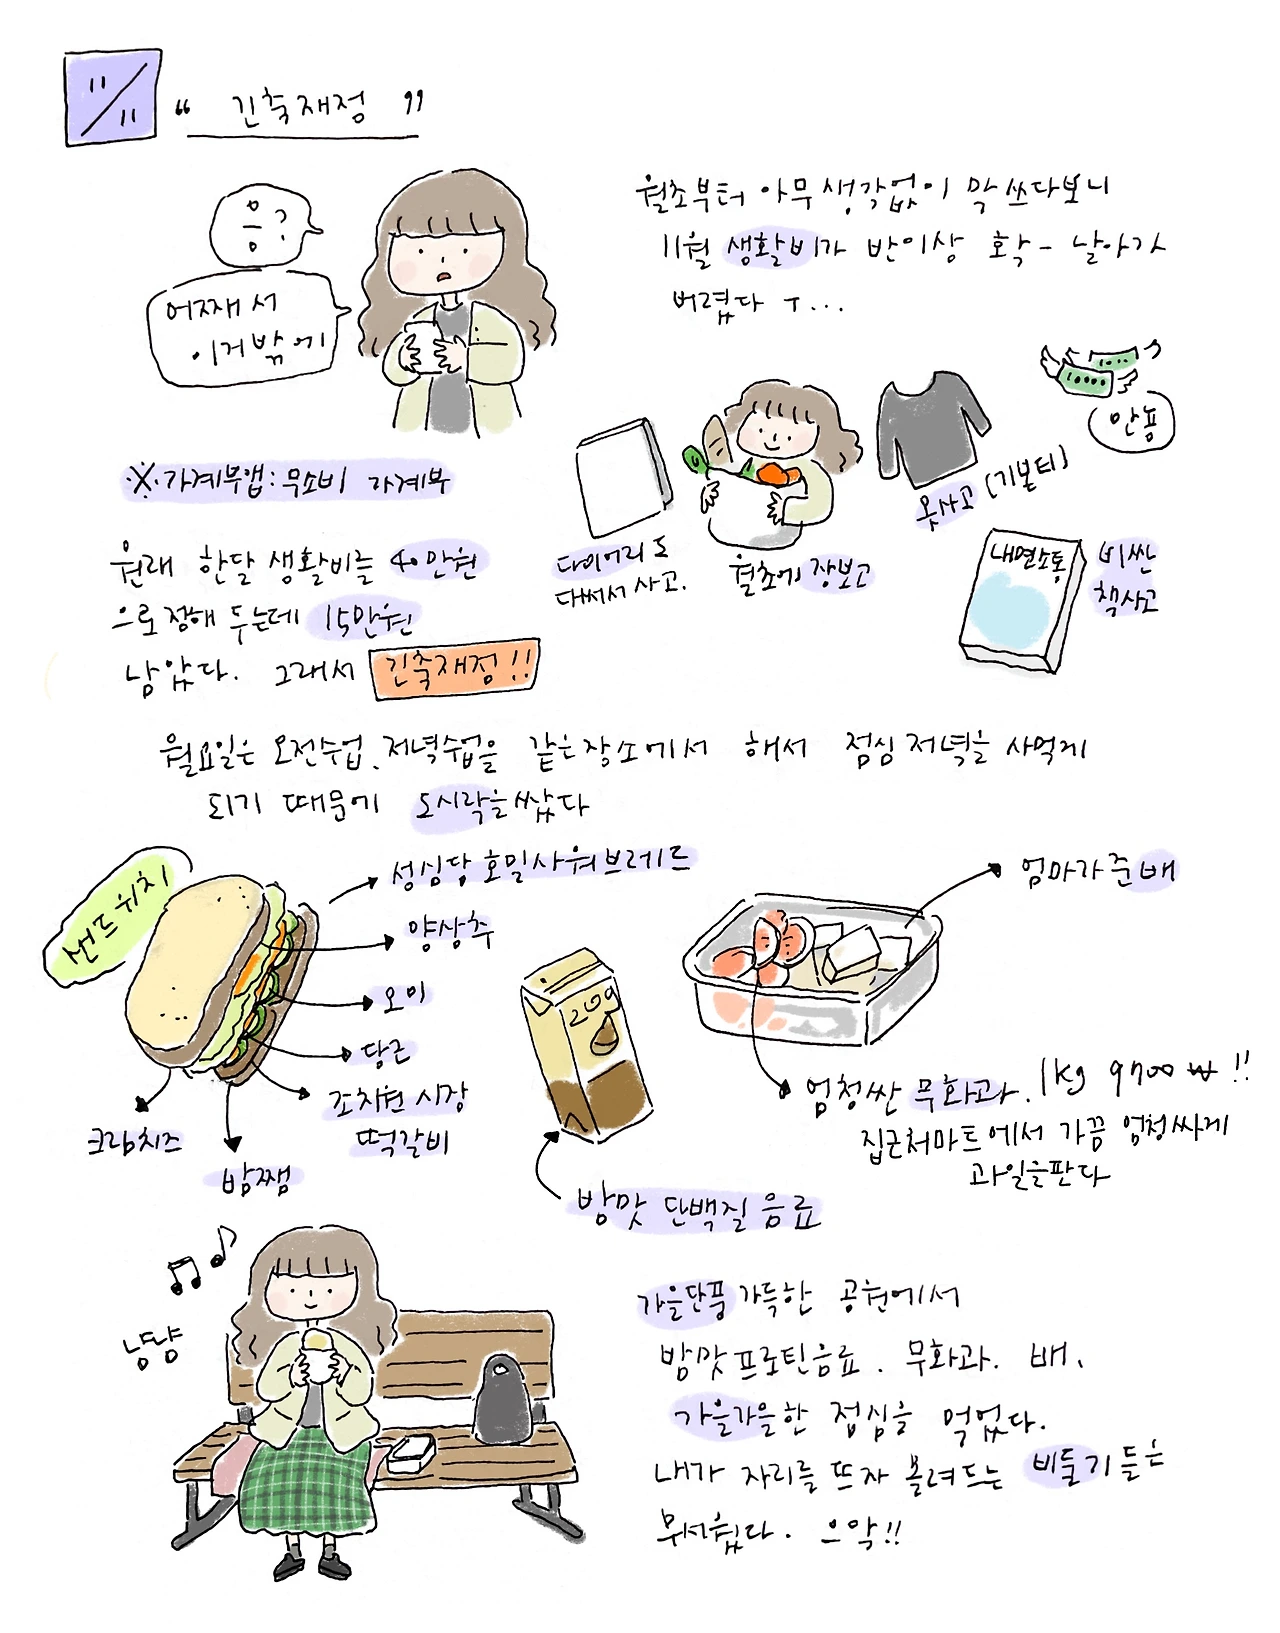 11/11
“ 긴축재정 ”
음?
어째서
이거밖에
월초부터 아무생각없이 막쓰다보니
11월 생활비가 반이상 확- 날아가
버렸다 ㅜ...
※가계부앱: 무소비 가계부
원래 한달 생활비를 40만원
으로정해 두는데 15만원
남았다. 그래서 긴축재정!!
다이어리도
다써서 사고.
월초에 장보고
옷사고 (기본티)
10000
안뇽
내면소통
비싼
책사고
월요일은 오전수업, 저녁수업을 같은장소에서 해서 점심저녁을 사먹게
되기 때문에 도시락을쌌다
샌드위치
성심당호밀사워브레드
양상추
오이
당근
조치원시장
떡갈비
크림치즈
밤쨈
20g
밤맛 단백질음료
엄마가준배
엄청싼 무화과. 1kg 9700₩!!
집근처마트에서 가끔 엄청싸게
과일을판다
냠냠
가을단풍 가득한 공원에서
밤맛프로틴음료. 무화과. 배.
가을가을한 점심을 먹었다.
내가 자리를 뜨자 몰려드는 비둘기들은
무서웠다. 으악!!